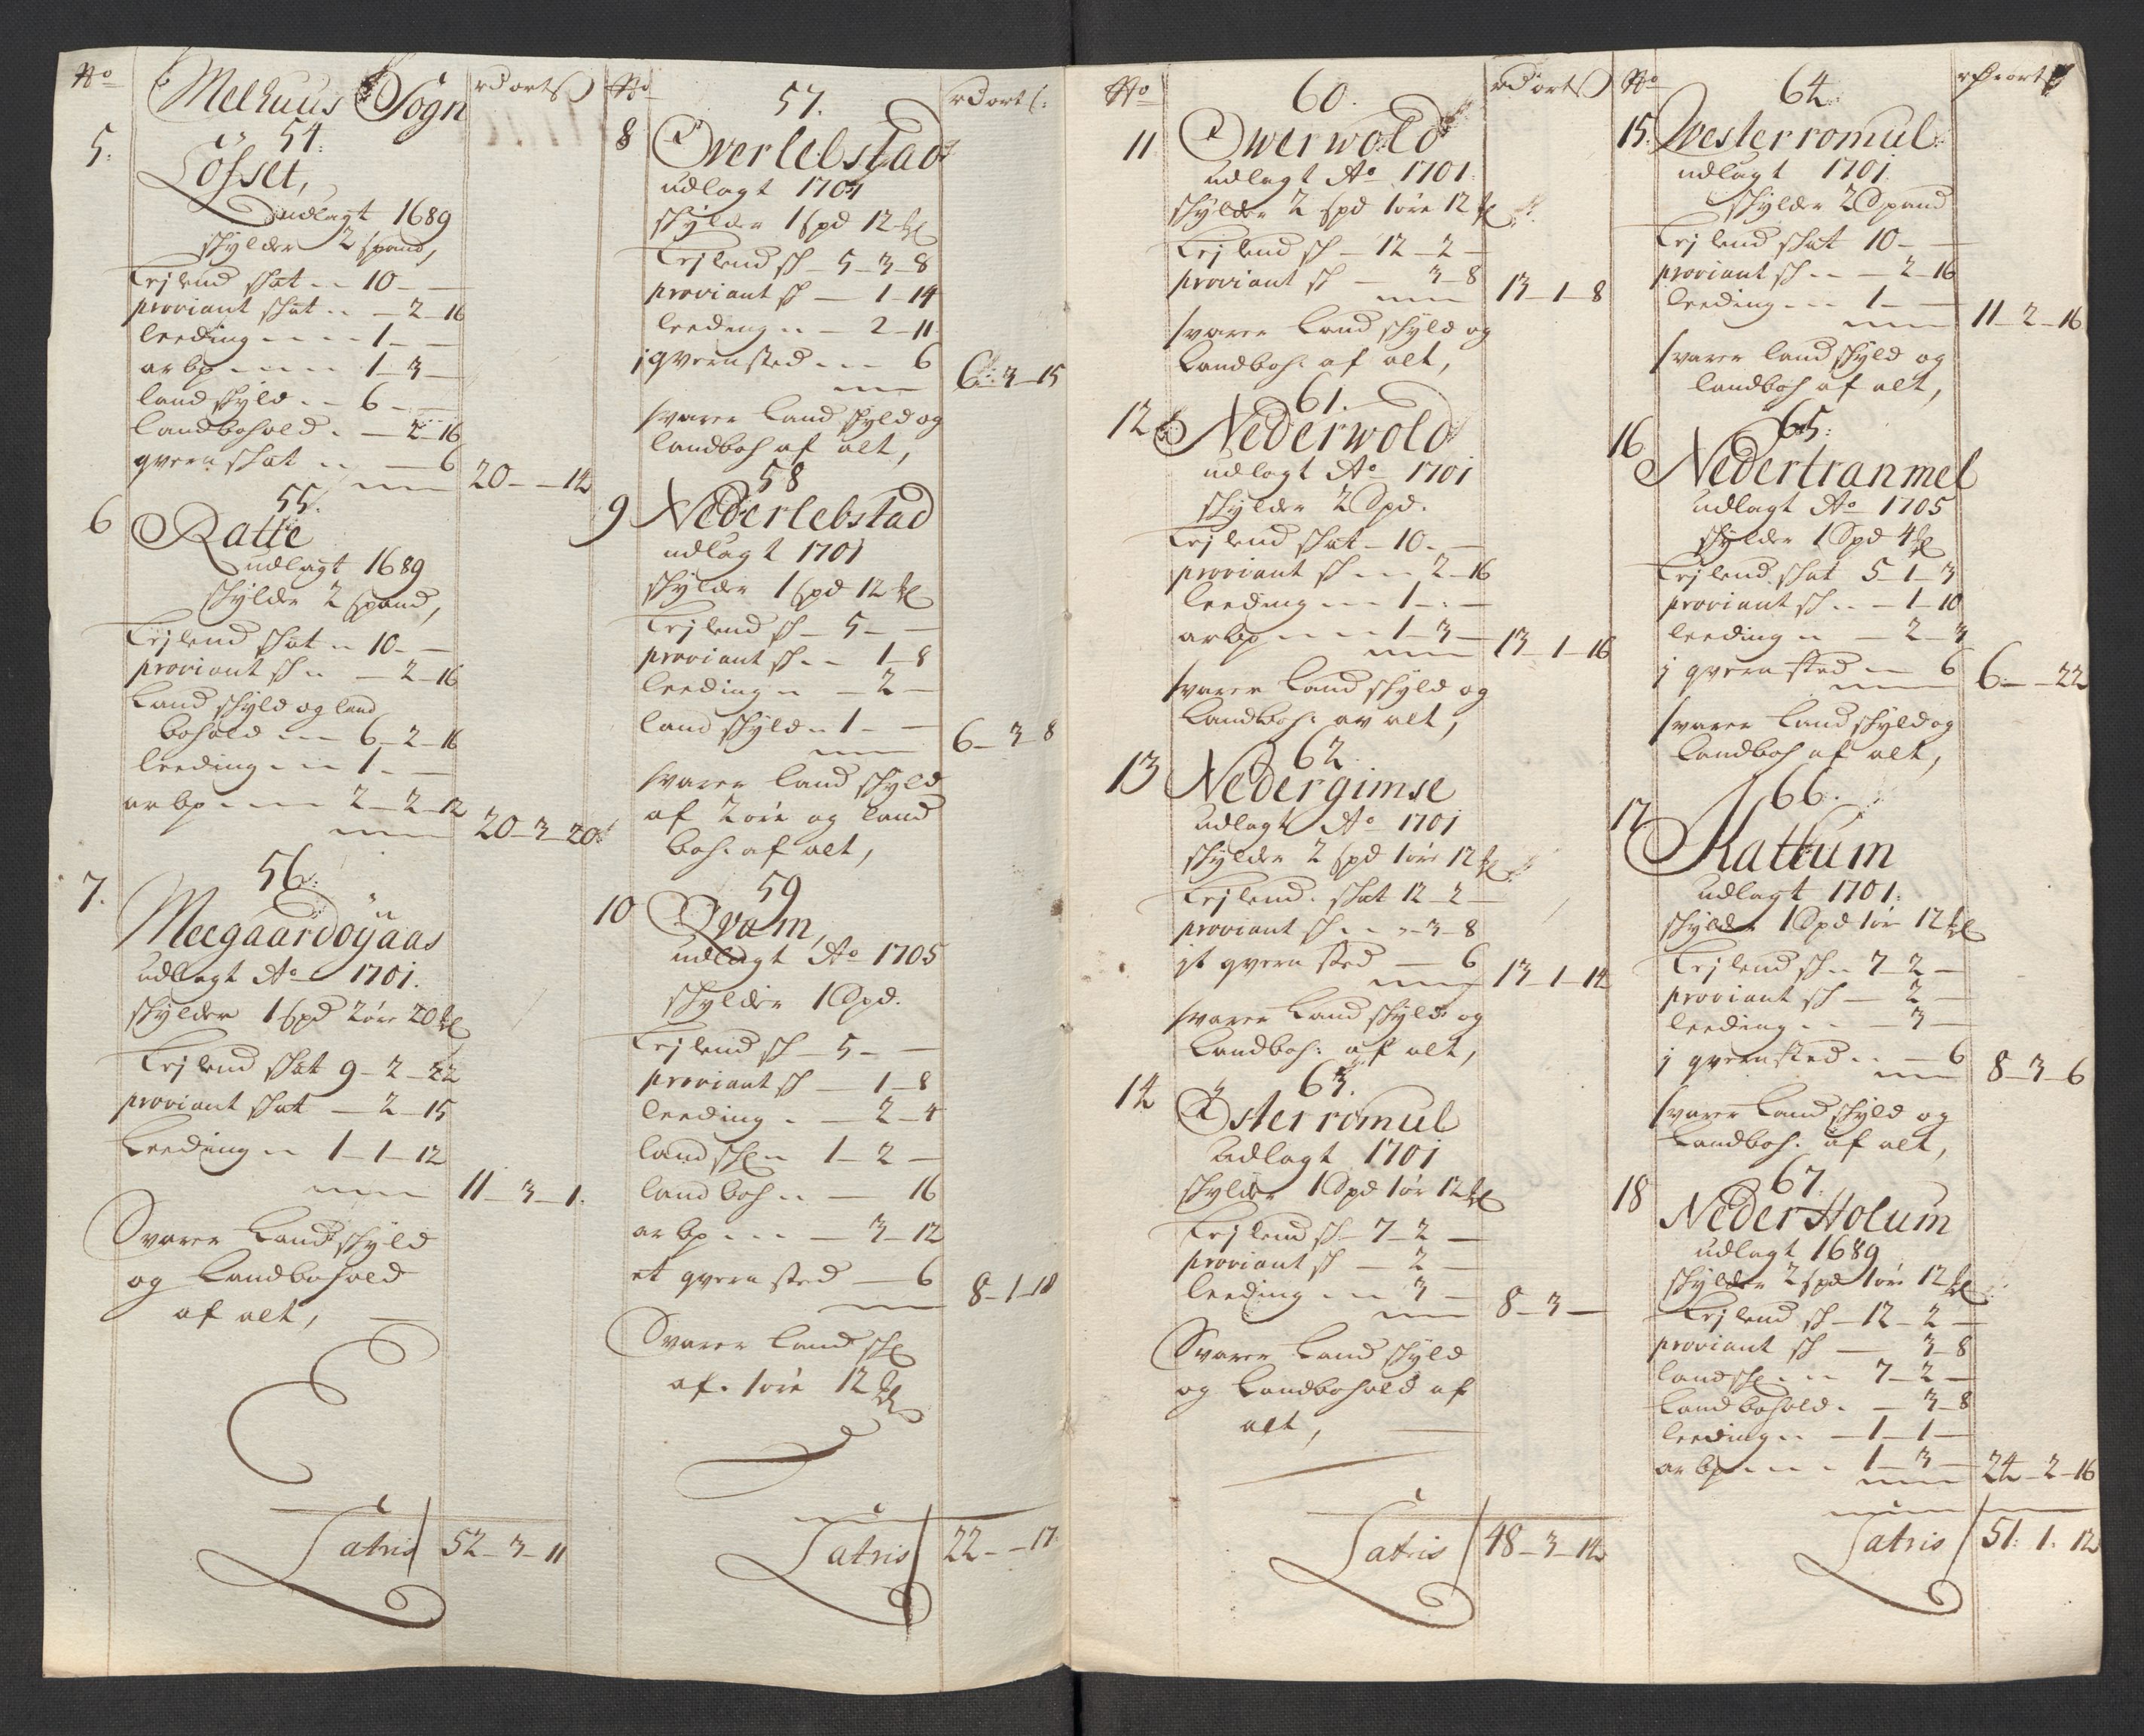 No
Melhuus Sogn
rd ort s
5.
54.
Losset,
udlagt 1689
skylder 2 spand,
Lejlend skat 10 - -
proviant skat - 2 - 16
leeding 1 - -
arbp 1 - 3 -
land skyld 6 - -
landbohold - 2 - 16
qvern skat - 6
20 - - 14
55.
6 Ratte
udlagt 1689
skylder 2 spand,
Lejlend skat 10 - -
proviant sk - 2 - 16
Land skyld og land
bohold 6 - 2 - 16
leeding 1 - -
arbp 2 - 2 - 12
20 - 3 - 20
56.
7.
Meegaardoÿaas
udlagt Ao 1701.
skylder 1 spd 2 øre 20
Lejlend skat 9 - 2 - 22
proviant skat - 2 - 15
Leeding 1 - 1 - 12
11 - 3 - 1.
Svarer Landskyld
og Landbohold
af alt,
Latris 52 - 3 - 11
No
57.
rd ort s:
8 Overlebstad
udlagt 1701
skylder 1 spd 12
Lejlend sk - 5 - 3 - 8
proviant sk - 1 - 14
leeding - 2 - 11
j qvernsted 6
6 - 3 - 15
svarer land skyld og
landboh af alt,
58
9 Nederlebstad
udlagt 1701
skylder 1 spd 12
Lejlend sk - 5 - -
proviant sk 1 - 8
leeding - 2 -
land skyld 1 - -
6 - 3 - 8
svarer land skyld
af 2 øre og land
boh: af alt,
59
10 Qvam,
udlagt Ao 1705
skylder 1 Spd.
Lejlend sk - 5 - -
proviant sk - 1 - 8
leeding - 2 - 4
land sk 1 - 2 -
land boh - 16
arbp - 3 - 12
et qvern sted - 6
8 - 1 - 18
Svarer land sk
af 1 øre 12
Latris 22 - - 17
No
60.
rd ort s
11 Owerwold
udlagt Ao 1701.
skylder 2 spd 1 øre 12
Lejlend sk - 12 - 2 -
proviant sk - 3 - 8
13 - 1 - 8
svarer land skyld og
Landboh: af alt,
61.
12 Nederwold
udlagt Ao 1701
skylder 2 Spd.
Lejlend skat - 10 - -
proviant sk 2 - 16
leeding 1 - -
arbp 1 - 3 -
13 - 1 - 16
svarer land skyld og
Landboh: av alt,
62.
13 Nedergimse
udlagt Ao 1701
skylder 2 spd 1 øre 12
Lejlend. skat 12 - 2 -
proviant sk - 3 - 8
jt qvern sted - 6
13 - 1 - 14
svarer Land skyld og
Landboh: af alt,
63.
14 Østerromul
udlagt 1701
skylder 1 Spd 1 ør 12
Lejlend sk - 7 - 2 -
proviant sk - 2 -
leeding 3 -
8 - 3 -
Svarer Land skyld
og Landbohold af
alt,
Latris 48 - 3 - 14
No
64.
15. Westerromul
udlagt 1701
skylder 2 Spand
Lejlend skat 10 - -
proviant sk - 2 - 16
leeding 1 - -
11 - 2 - 16
svarer land skyld og
landboh af alt,
65.
16 Nedertranmel
udlagt Ao 1705
skylder 1 Spd 4
Lejlend skat 5 - 1 - 3
proviant sk - 1 - 10
leeding - 2 - 3
j qvern sted 6
6 - - 22
svarer land skyld og
landboh af alt,
66.
17 Kattum
udlagt 1701.
skylder 1 Spd 1 ør 12
Lejlend sk 7 - 2 -
proviant sk - 2 -
leeding - 3 -
j qvernsted - 6
8 - 3 - 6
svarer land skyld og
Landboh: af alt,
67.
18 NederHolum
udlagt 1689
skylder 2 spd 1 øre 12
Lejlend sk - 12 - 2 -
proviant sk - 3 - 8
land sk 7 - 2 -
Landbohold - 3 - 8
leeding - 1 - 1 -
arbp 1 - 3 -
24 - 2 - 16
Latris 51: 1. 12